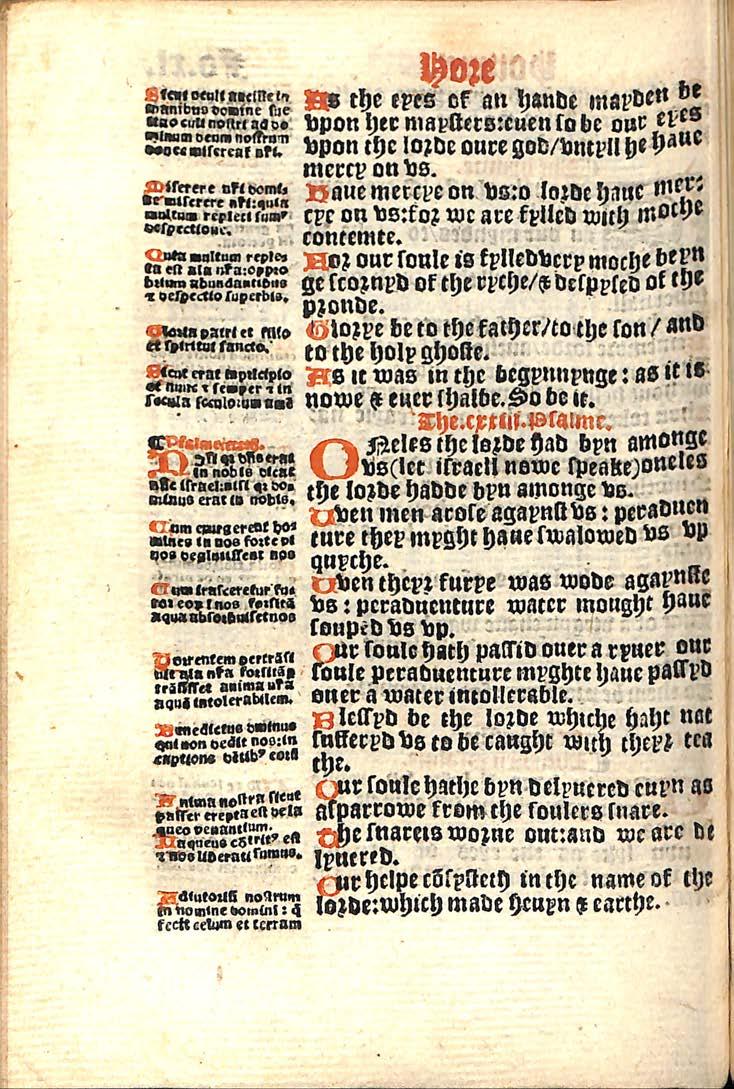 Hore
As the eyes of an hande mayden be
vpon her maysters:euen so be our eyes
vpon the lorde oure god/vntyll he haue
mercy on vs.
Haue mercye on vs:o lorde haue mer⸗
cye on vs:for we are fylled with moche
contemte.
For our soule is fylledvery moche beyn
ge scornyd of the ryche/& despysed of the
pronde.
Glorye be to the father/to the son/ and
to the holy ghoste.
As it was in the begynnynge: as it is
nowe & euer shalbe. So be it.
The.cxxiii.Psalme.
ONeles the lorde had byn amonge
vs(let israell nowe speake)oneles
the lorde hadde byn amonge vs.
When men arose agaynst vs: peraduen
ture they myght haue swalowed vs vp
quyche.
When theyr furye was wode agaynste
vs: peraduenture water mought haue
souped vs vp.
Our soule hath passid ouer a ryuer our
soule peraduenture myghte haue passyd
ouer a water intollerable.
Blessyd be the lorde whiche haht nat
sufferyd vs to be caught with theyr tea
the.
Our soule hathe byn delyuered euyn as
asparrowe from the foulers snare.
The snareis worne out:and we are de
lyuered.
Our helpe cõsysteth in the name of the
lorde:which made heuyn & earthe.
Sicut oculi ancille in
manibus domine sue
ita oculi nostri ad do
minum deum nostrum
donec misereat nri.
Miserere nri domi⸗
ne miserere nri:quia
multum repleti sumꝰ
despectione.
Quia multum reple⸗
ta est aĩa nra:oppro
brium abundantibus
⁊ despectio superbis.
Gloria patri et filio
et spiritui sancto.
Sicut erat inprĩcipio
et nunc ⁊ semper ⁊ in
secula seculorum amẽ
Nisi qr dñs erat
in nobis dicat
nũc israel:nisi qr do⸗
minus erat in nobis.
Cum exurgerent ho⸗
mines in nos forte vi
uos deglutissent nos
Cum irasceretur fu⸗
ror eorũ nos forsitã
aqua absorbuisset nos
Torrentem pertrãsi
uit aĩa nra forsitãp
trãsisset anima nra
aquã intolerabilem.
Benedictus dominus
qui non dedit nos:in
captione dẽtibꝰ eorũ
Anima nostra sicut
passer erepta est de la
queo venantium.
Laqueus cõtritꝰ est
⁊ nos liberati sumus.
Adiutoriũ nostrum
in nomine domini: q̃
fecit celum et terram